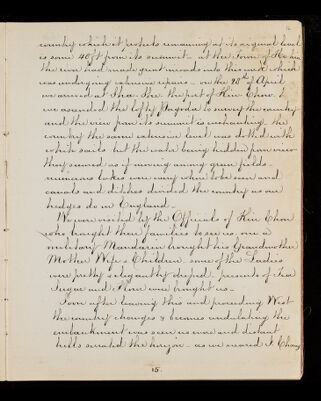 country which it protects remaining at its original level
is some 40 ft from its summit - at the Town of
the river had made great inroads into this wall which
was undergoing extensive repairs - on the 28th of April
we arrived at Sha-She the port of Kin Chow &
we ascended the lofty Pagoda to survey the country
and the view from its summit is enchanting the
country the same extensive level was dotted with
white sails but the water being hidden from view
they seemed as if moving among green fields -
numerous lakes were every where to be seen and
canals and ditches divided the country as our
hedges do in England -
We were visited by the Officials of Kin Chow
who brought their families to see us, one a
military Mandarin brought his Grandmother
Mother Wife & Children, some of the Ladies
were pretty & elegantly draped, presents of Tea
Sugar and Flour were brought us -
Soon after leaving this and proceeding West
the country changes & becomes undulating the
embankment was seen no more and distant
hills serrated the horizon - as we neared I. Chang
15.